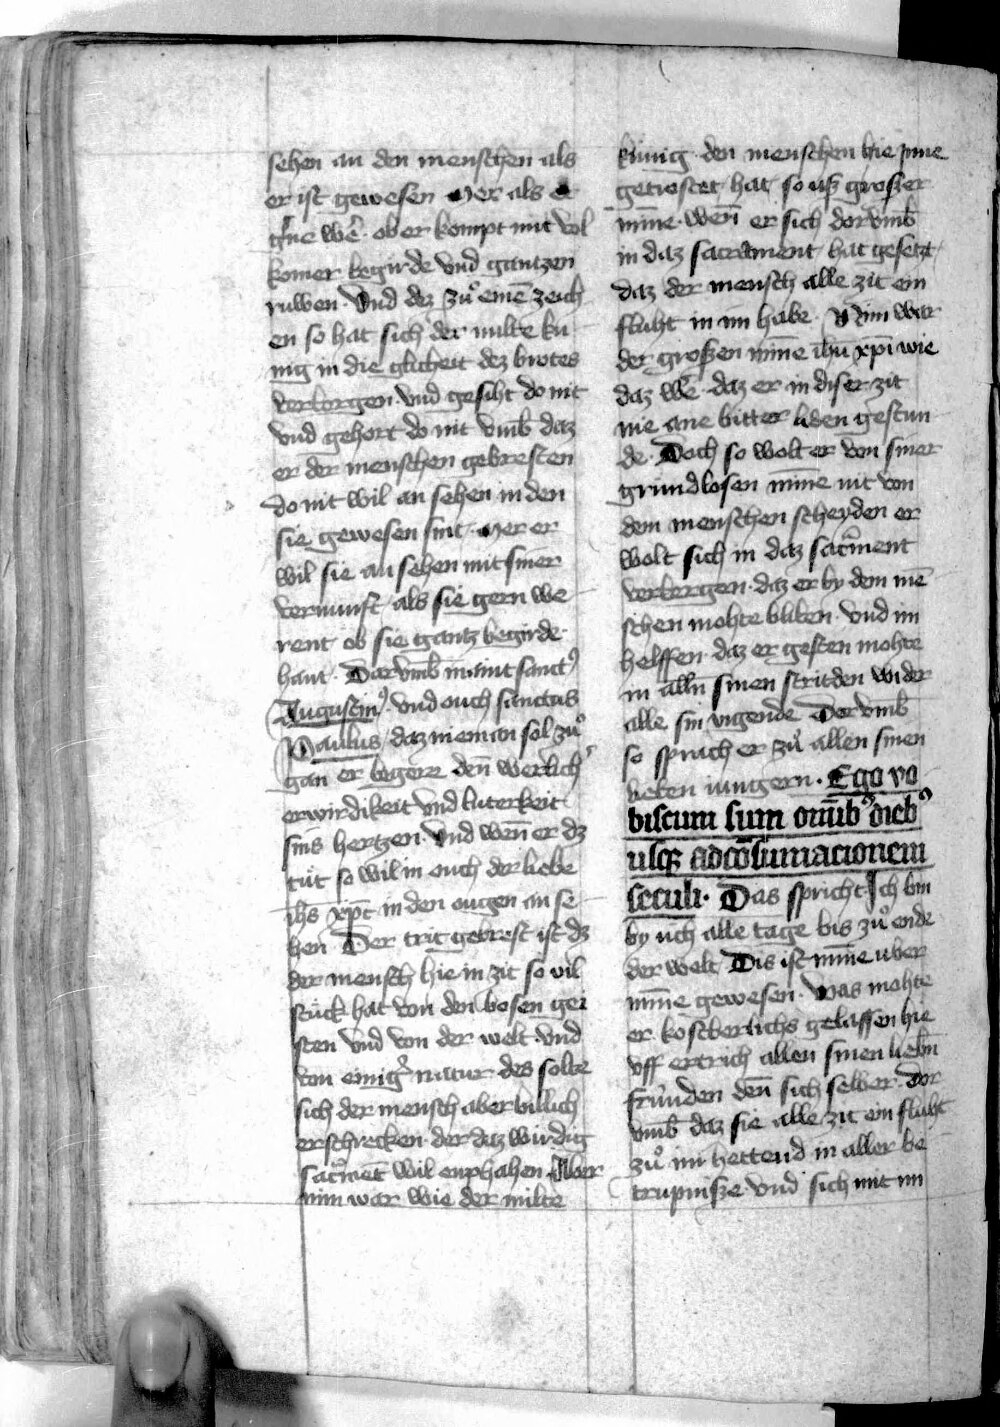 sehen an den menschen als
er ist gewesen Mer als er
gͤne wē · ob er kompt mit vol
komer begirde vnd gantzen
ruwen · Vnd dez zuͦ einē zeich
en so hat sich der milte ku
nig in die glicheit dez brotes
verborgen · vnd gesiht do nit
vnd gehort do nit vmb daz
er der menschen gebresten
do nit wil an sehen in den
sie gewesen sint · Mer er
wil sie an sehen mit siner
vernunft als sie gern we
rent ob sie gantz begirde
hant · Dar vmb maint sanctꝰ
Augustinꝰ · vnd ouch sanctus
Paulus / daz nieman sol zuͦ
gan er begere den̄ werlich
erwirdikeit vnd luterkeit
sins hertzen · Vnd wen̄ er dz
tuͤt so wil in ouch der liebe
ihs xp̄c in den ougen an se
hen Der trit gebrest ist dz
der mensch hie in zit so vil
stuck hat von den bosen gei
sten vnd von der welt · vnd
von einigͤ natur des solte
sich der mensch aber billich
erschrecken · der daz wirdig
sacr̄met wil enphahen Aber
nim war wie der milte
kúnig den menschen hie Jnne
getrostet hat so uß großer
min̄e · wen̄ er sich dor vmb
in daz sacrament hat gesetzt
daz der mensch alle zit ein
fluht in im habe · Nim war
der großen min̄e ih̄u xp̄i wie
daz wē daz er in diser zit
nie ane bitter liden gestun
de · Doch so wolt er von siner
grundlosen min̄e nit von
dem menschen scheyden er
wolt sich in daz sacr̄ment
verbergen · daz er by dem mē
schen mohte bliben · vnd im
helffen · daz er gesten mohte
in alln̄ sinen stritden wider
alle sin vigende Dor vmb
so sprach er zuͦ allen sinen
lieben iungern · Ego vo
biscum sum om̄ibꝰ diebꝰ
usqꝫ ad cōsumacionem
seculi · Das spricht Ich bin
by uch alle tage bis zuͦ ende
der welt Dis ist min̄e uber
min̄e gewesen · Was mohte
er kosterlichs gelassen hie
vff ertrich allen sinen liebn̄
frúnden den̄ sich selber · Dor
vmb daz sie alle zit ein fluht
zuͦ im hettend in aller be
trupniße vnd sich mit im